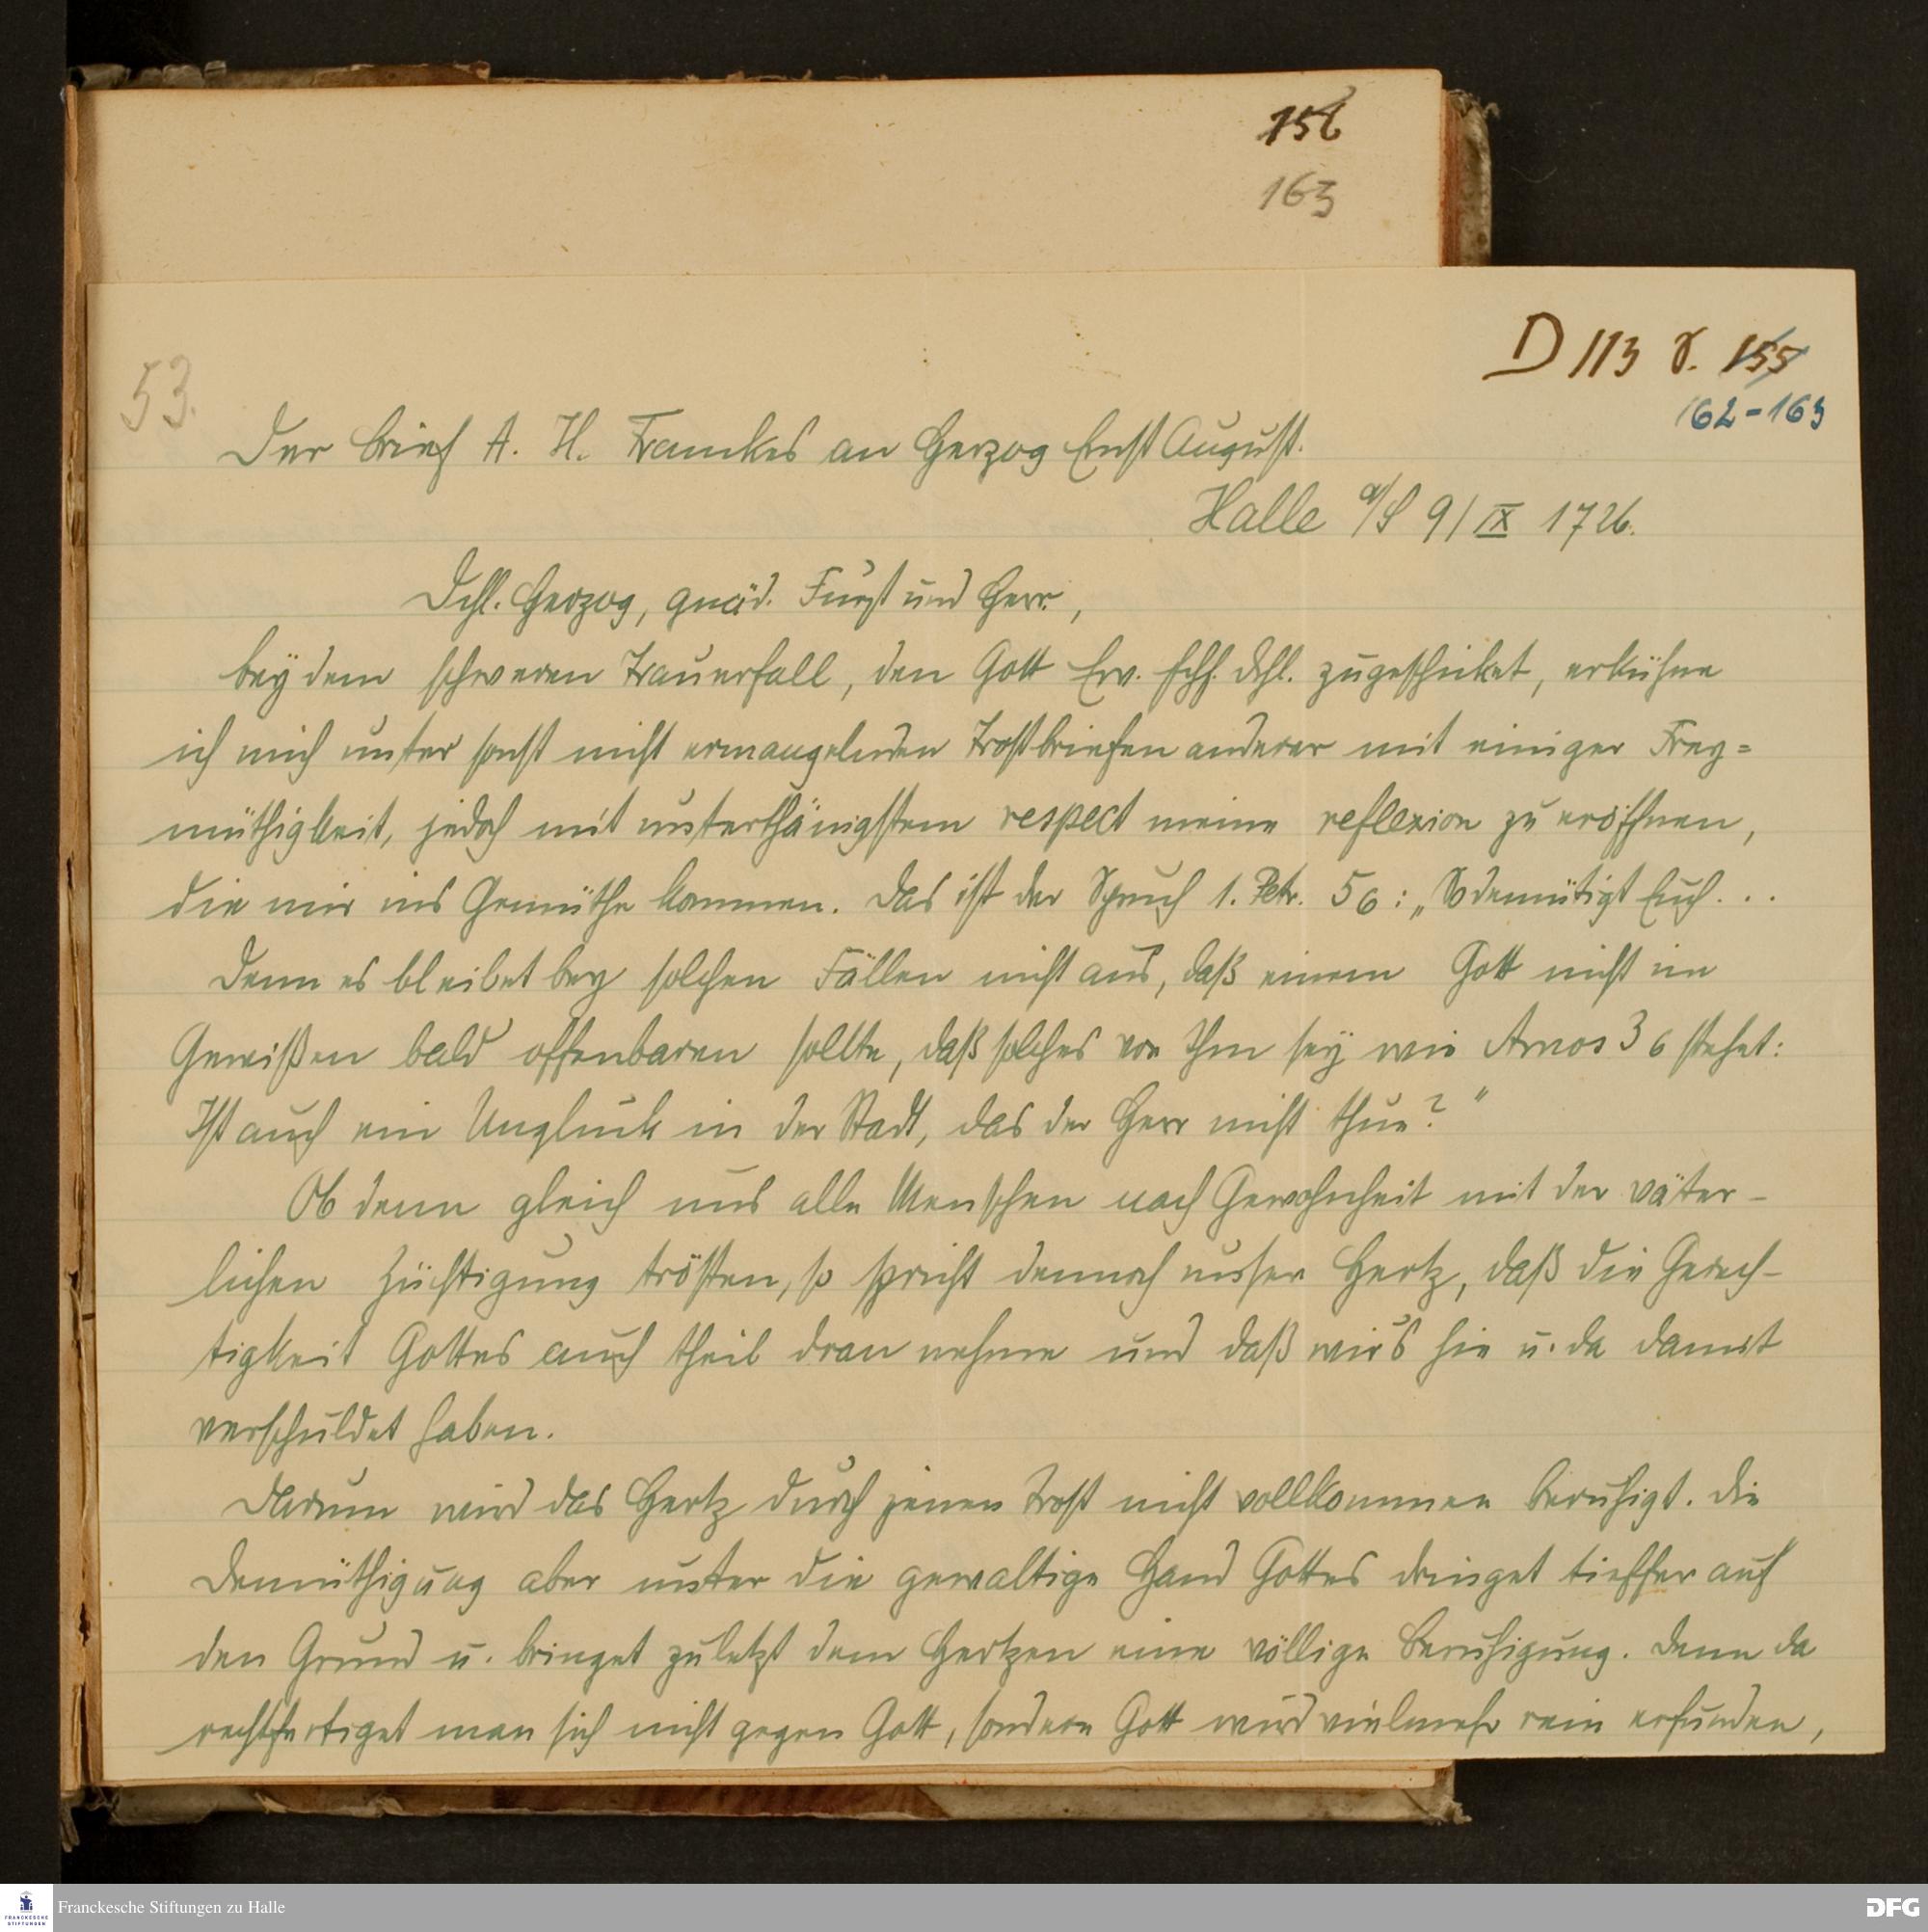 156
163
D 113 S. 155
162-163
53.
Der Brief A. H. Franckes an Herzog Ernst August.
Halle a/S 9/IX 1726.
Dchl. Herzog, gnäd. Fürst und Herr,
bey dem schweren Trauerfall, den Gott Ew. Hchf. Dchl. zugeschicket, erkühne
ich mich unter sonst nicht ermangelnden Trostbriefen anderer mit einiger Frey=
müthigkeit, jedoch mit unterthänigstem respect meine reflexion zu eröffnen,
die mir ins Gemüthe kommen. Das ist der Spruch 1. Petr. 5 6: „So demütigt Euch...
Denn es bleibet bey solchen Fällen nicht aus, daß einem Gott nicht im
Gewißen bald offenbaren sollte, daß solches von Ihm sey wie Amos 3 6 stehet:
Ist auch ein Unglück in der Stadt, das der Herr nicht thue?"
Ob denn gleich uns alle Menschen nach Gewohnheit mit der väter-
lichen Züchtigung trösten, so spricht dennoch unser Hertz, daß die Gerech-
tigkeit Gottes auch theil dran nehme und daß wir's hie u. da damit
verschuldet haben.
Darum wird das Hertz durch jenen Trost nicht vollkommen beruhigt. Die
Demüthigung aber unter die gewaltige Hand Gottes dringet tieffer auf
den Grund u. bringet zuletzt dem Hertzen eine völlige Beruhigung. Denn da
rechtfertiget man sich nicht gegen Gott, sondern Gott wird vielmehr rein erfunden,
Franckesche Stiftungen zu Halle
FRANCKESCHE STIFTUNGEN
DFG